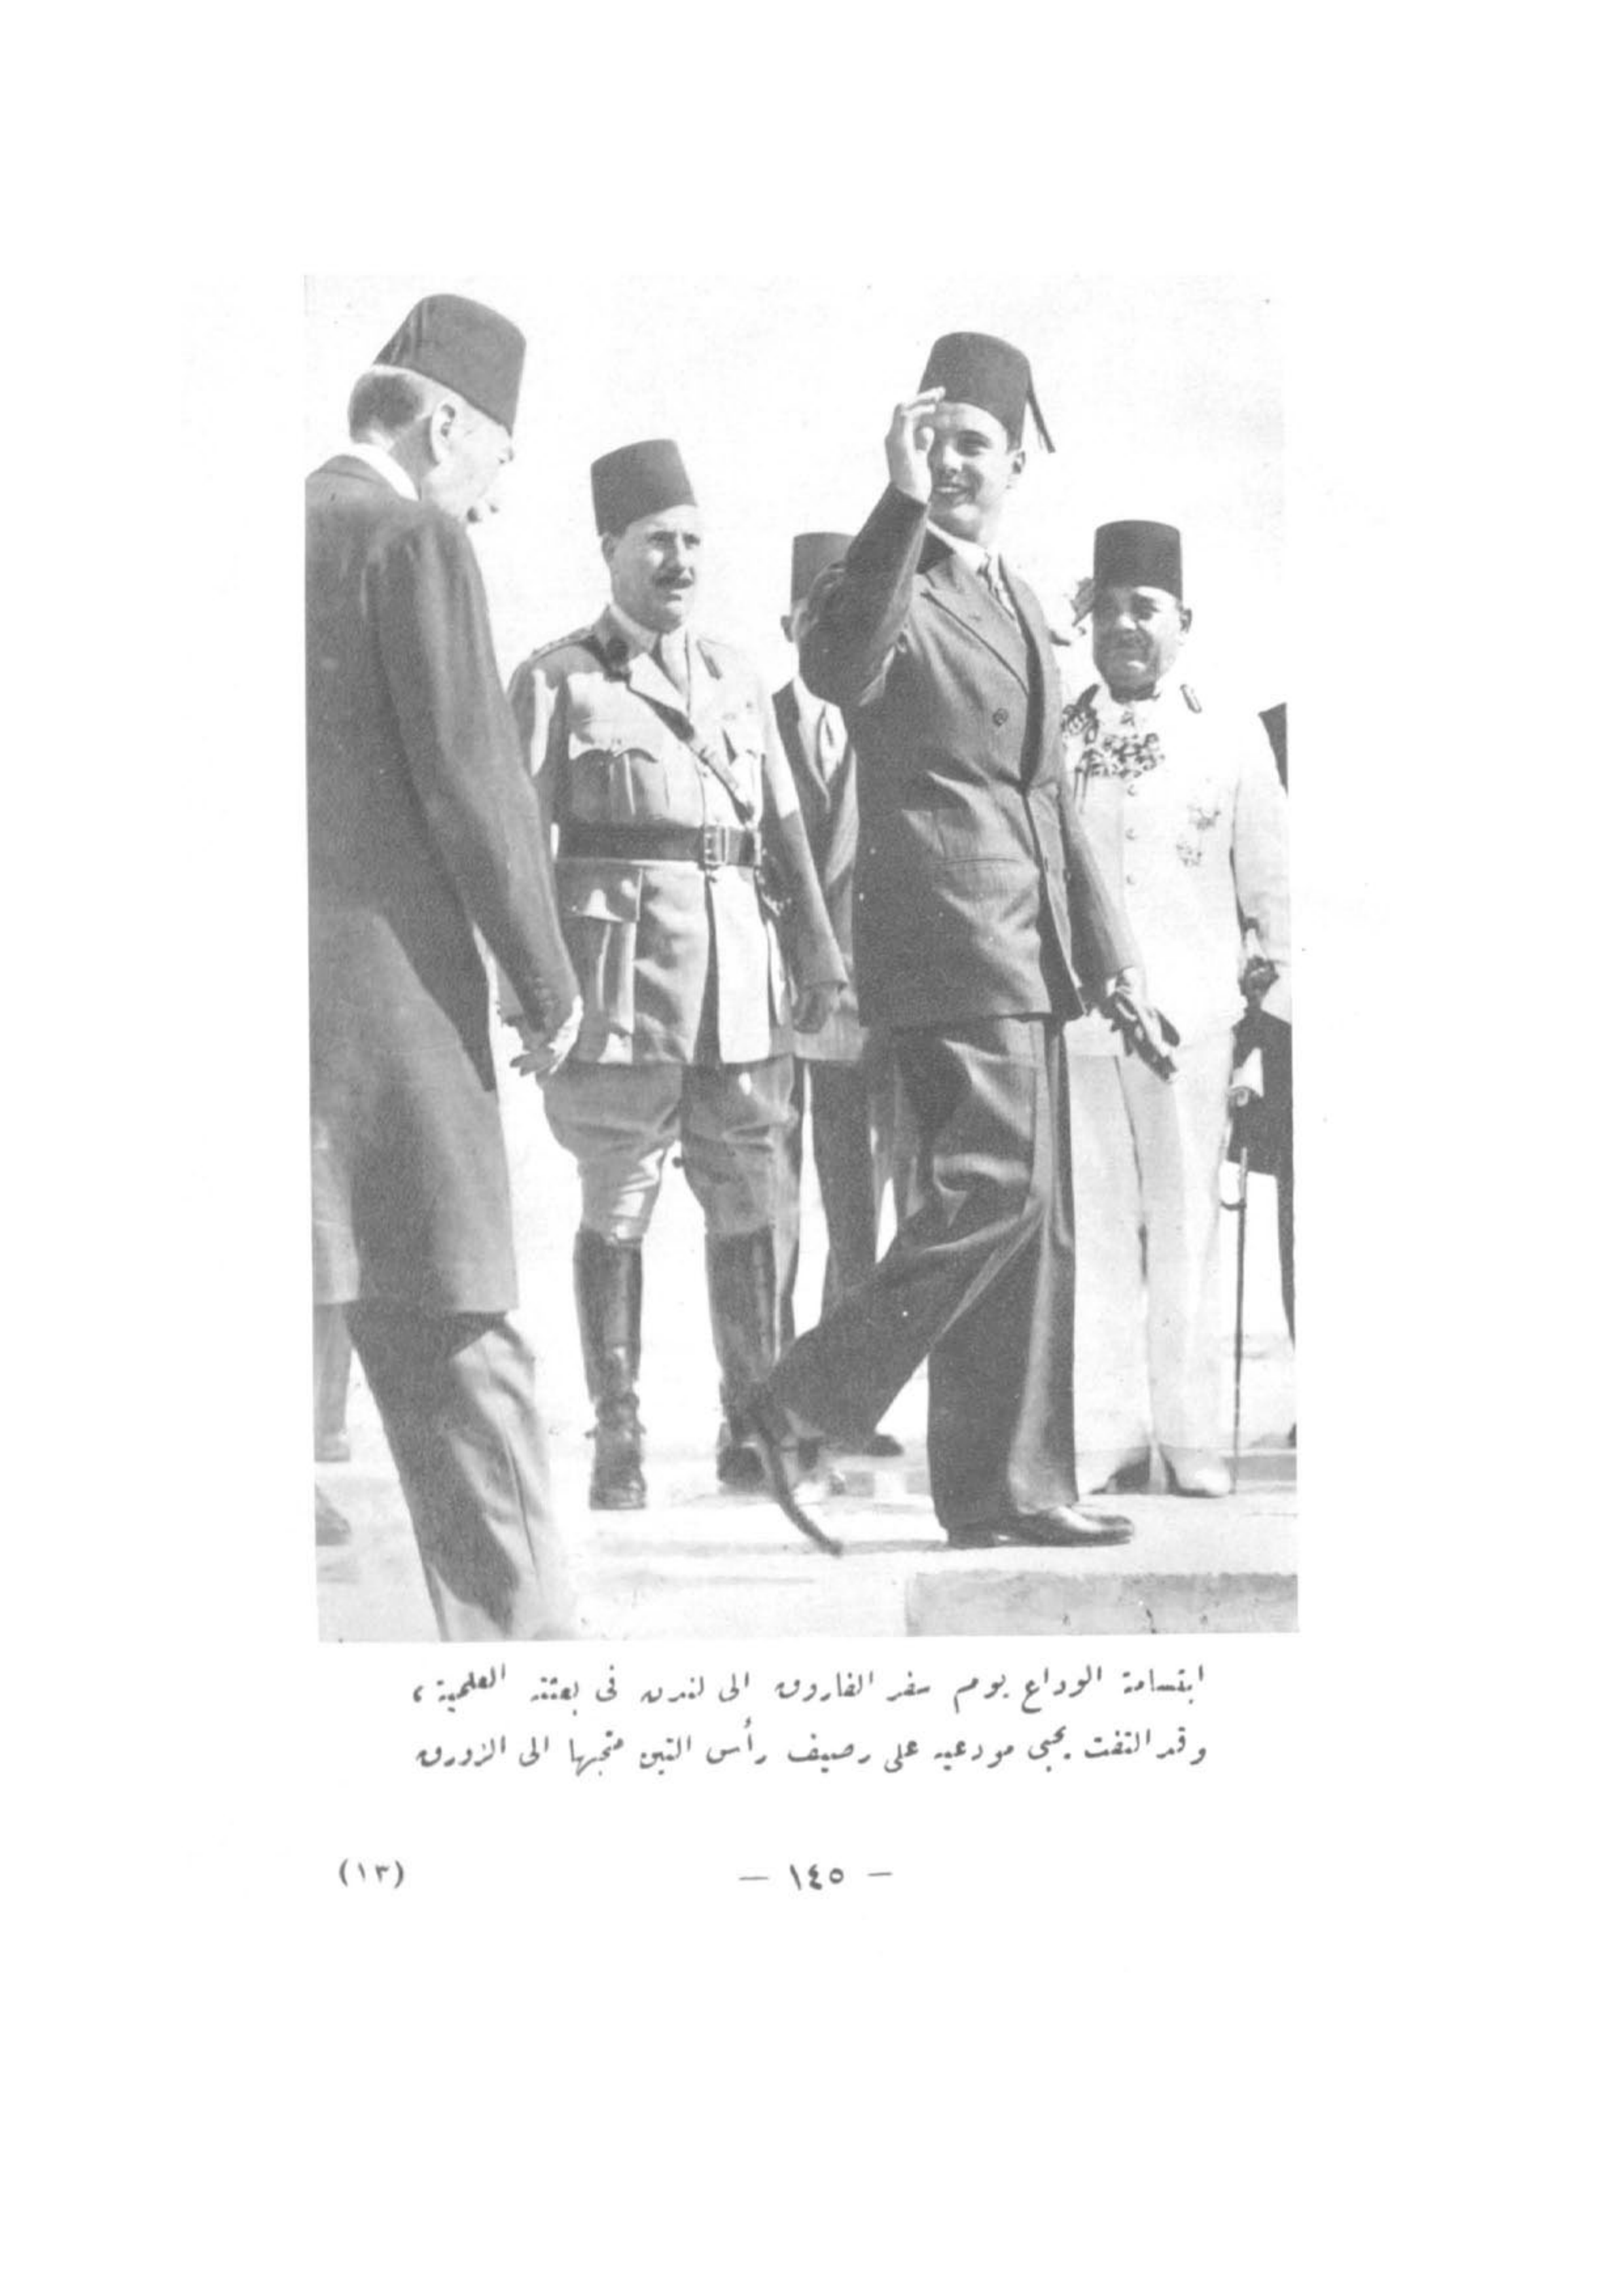 ابتسامة الوداع يوم سفر الفاروق الى لندن فى بعثته العلمية ،
وقد التفت يحيى مودعيه على رصيف رأس التين متجها الى الزورق
— ١٤٥ —
(١٣)